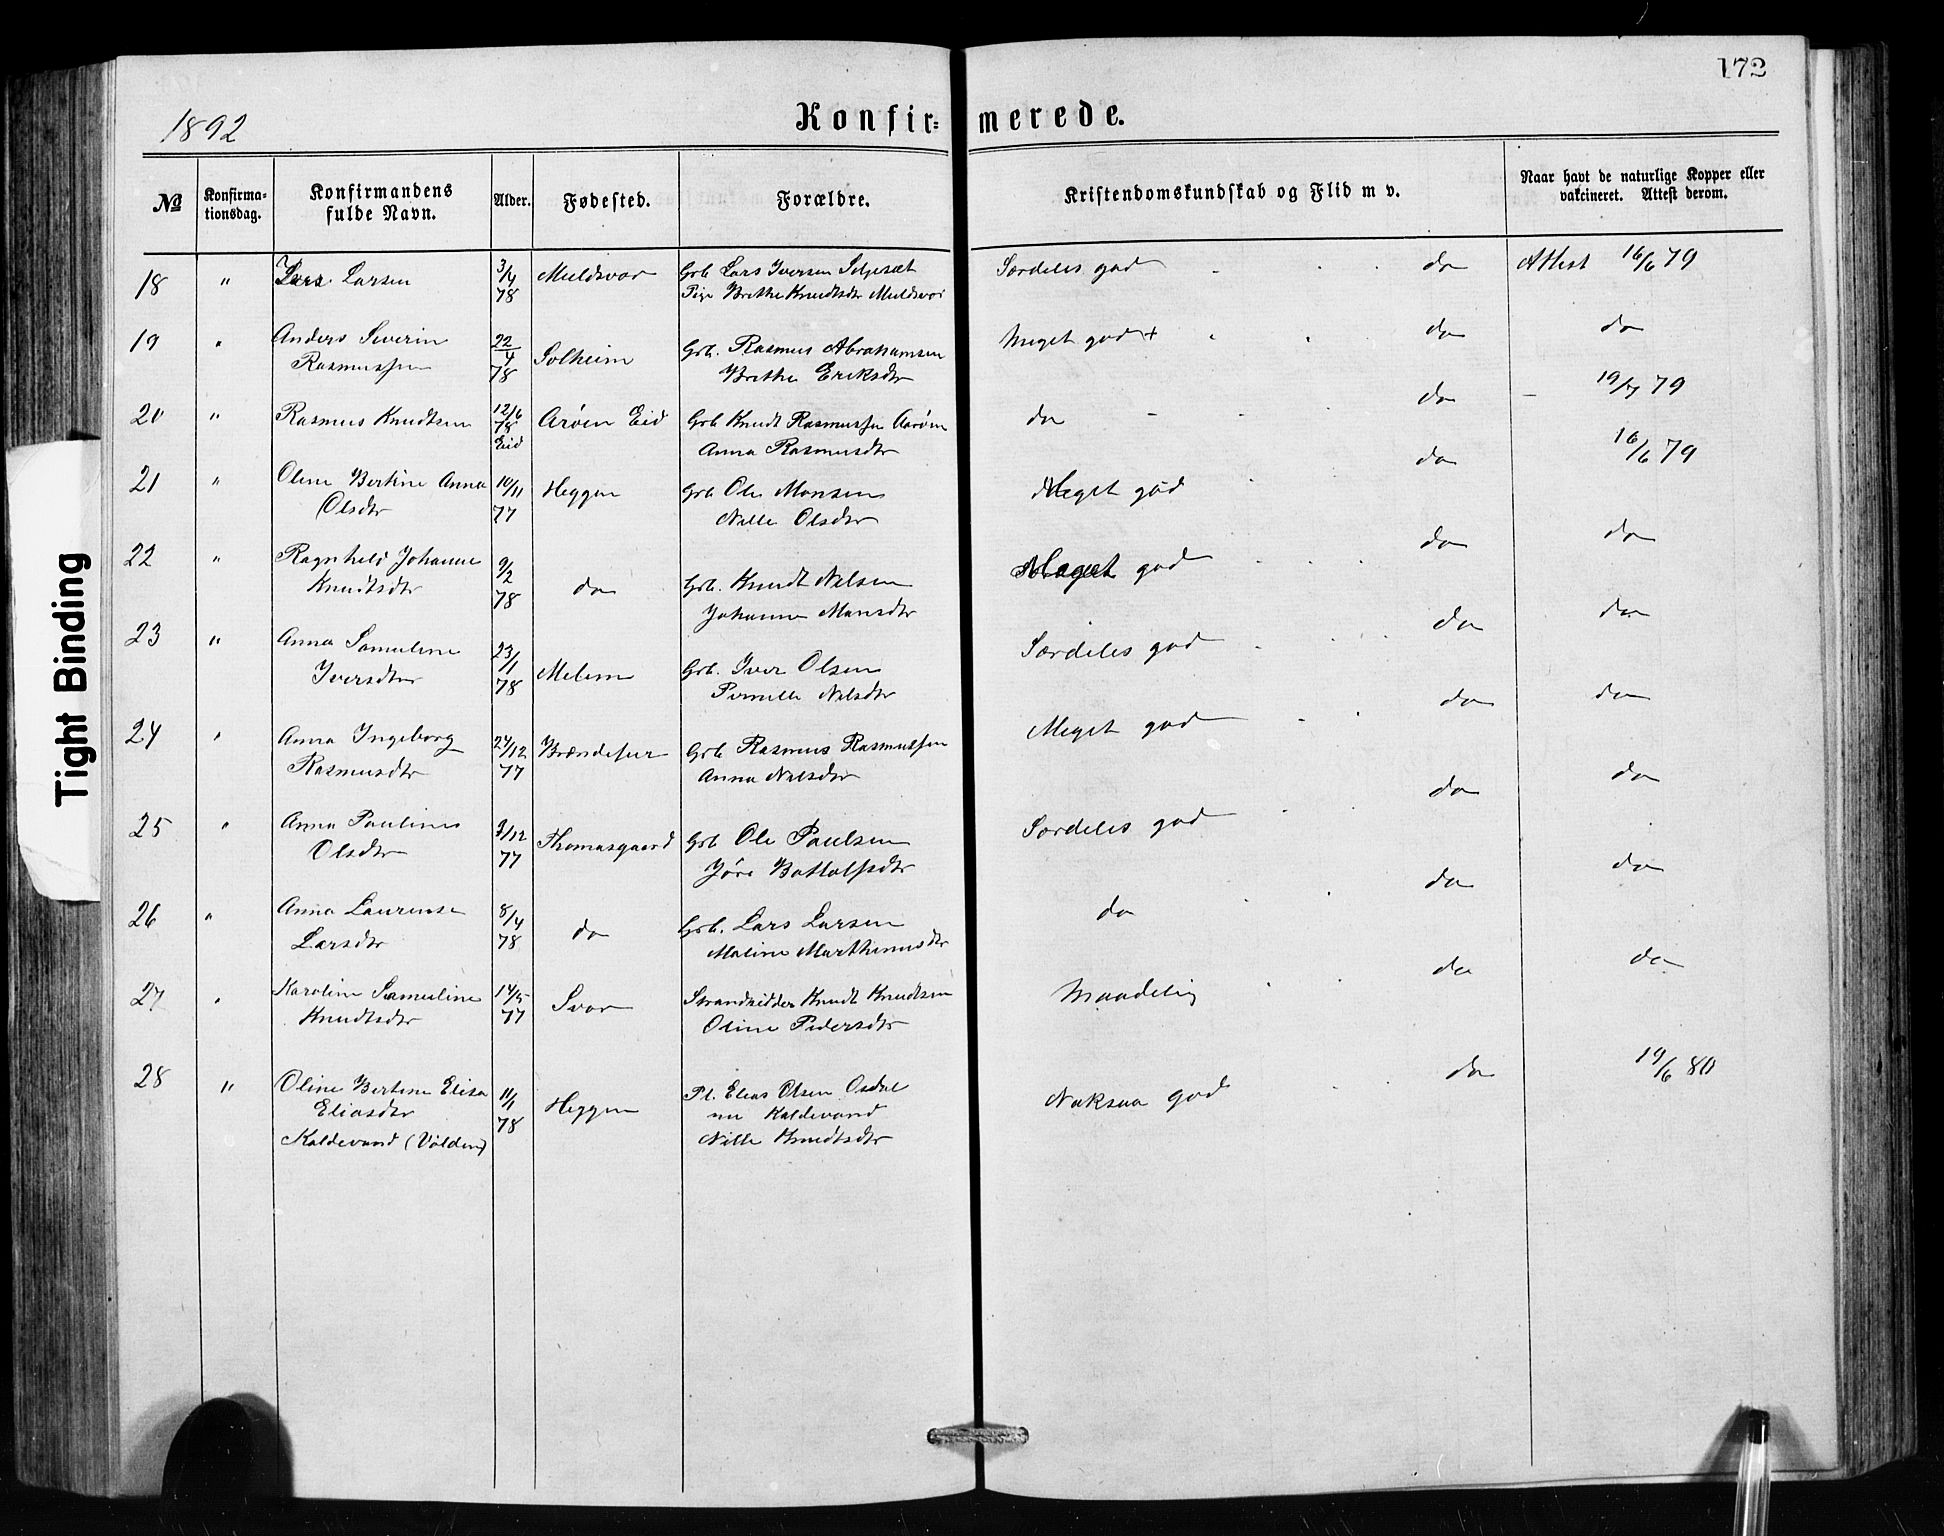 172
1892
Konfir= merede.
№
Konfirma-
tionsdag.
Konfirmandens
fulde Navn.
Alder.
Fødested.
Forældre.
Kristendomskundskab og Flid m v.
Naar havt de naturlige Kopper eller
vakcineret. Attest derom.
18 " Larsen 3/4 78 Muldsvor Grb Lars Iversen
Pige Brithe Knudtsdtr Muldsvor
Særdeles god do Attest 16/6 79
19 " Anders Severin
Rasmussen
22/4 78 Solheim Grb. Rasmus Abrahamsen
Brithe Eriksdtr
Meget god + do do
20 " Rasmus Knudtsen 12/6 78 Eid Arøen Eid Grb Knudt Rasmussen Aarøen
Anna Rasmusdtr
do do - 19/7 79
21 " Oline Bertine Anna
Olsdtr
10/11 77 Heggen Grb Ole Monsen
Nille Olsdtr
Meget god do 16/6 79
22 " Ragnhild Johanne
Knudtsdtr
9/2 78 do Grb. Knudt Nilsen
Johanne Monsdtr
Meget god do do
23 " Anna Samuline
Iversdtr
23/1 78 Melem Grb. Iver Olsen
Pernille Nilsdtr
Særdeles god do do
24 " Anna Ingeborg
Rasmusdtr
24/12 77 Brændefur Grb Rasmus Rasmussen
Anna Nilsdtr
Meget god do do
25 " Anna Pauline
Olsdtr
9/12 77 Thomasgaard Grb Ole Paulsen
Jøre Bottolfsdtr
Særdeles god do do
26 " Anna Laurense
Larsdtr
8/4 78 do Grb. Lars Larsen
Maline Marthinusdtr
do do do
27 " Karoline Samuline
Knudtsdtr
14/5 77 Svor Strandsidder Knudt Knudtsen
Oline Pedersdtr
Maadelig do do
28 " Oline Bertine Elisa
Eliasdtr
Kaldevand (Volden)
11/1 78 Heggen Pl. Elias Olsen Osdal
nu Kaldevand
Nille Knudtsdtr
Noksaa god do 19/6 80
Tight Binding